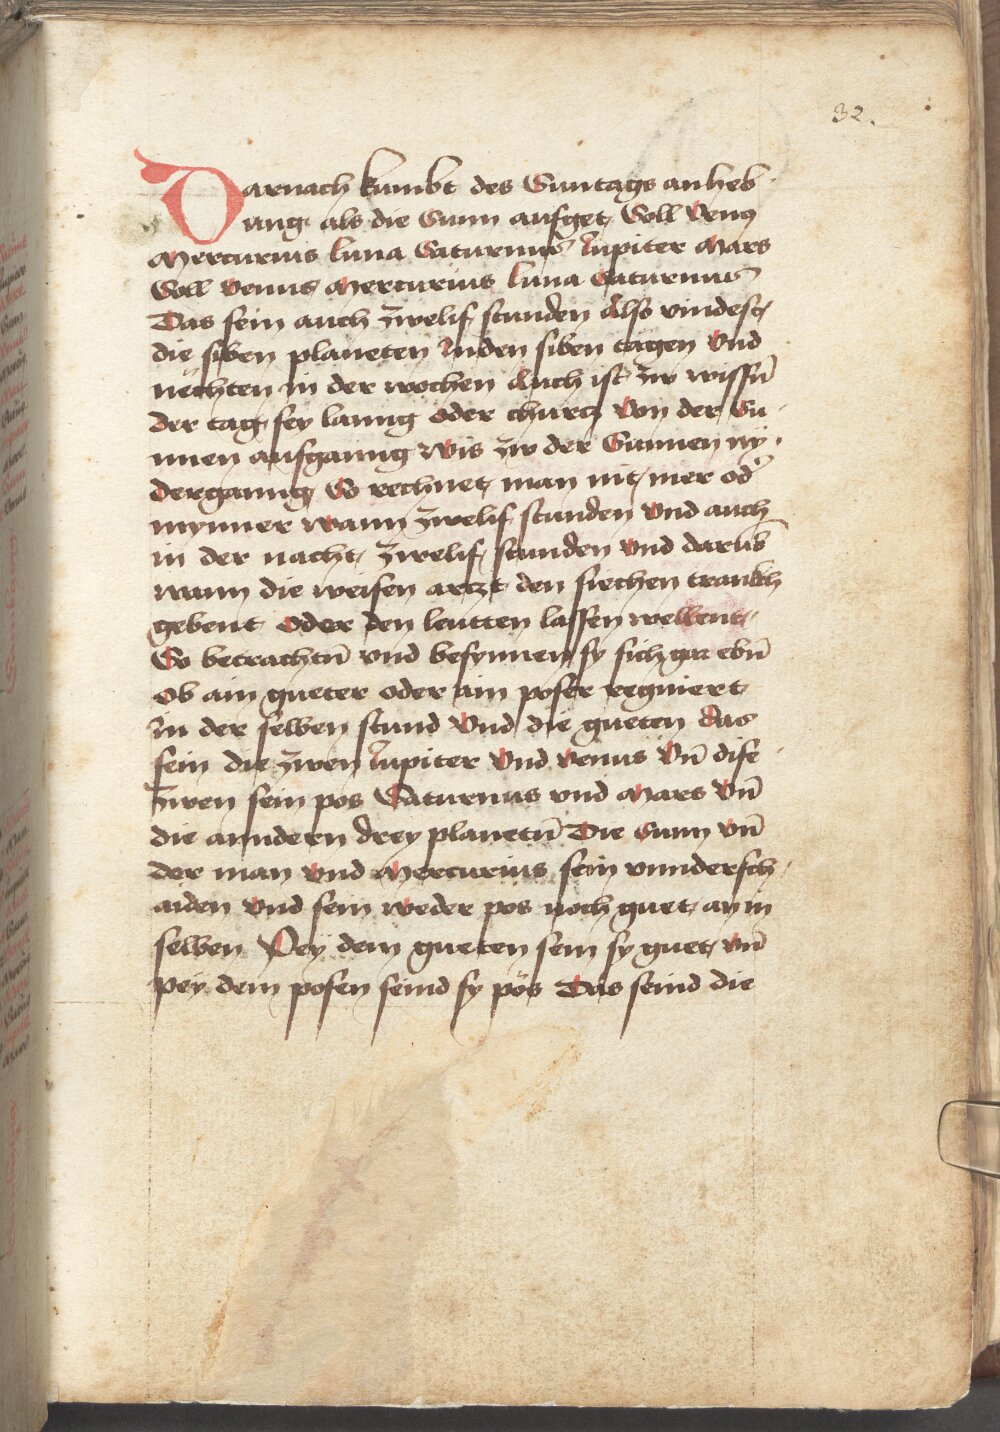 32.
Darnach kumbt des Suntags anheb
ung als die Sunn aufget Soll Venus
Mercurius luna Saturnus Jupiter Mars
Soll Venus Mercurius luna Saturnus
Das sein auch zwelif stunden Also vindest
die siben planeten In den siben tägen Und
nëchten in der wochen Auch ist zw wissn̄
der tag sey lanng oder churcz Von der Su
nnen aufganng Wis zw der Sunnen ny
dergannng So rechnet man nit mer od
mynner wann zwelif stunden Und auch
in der nacht zwelif stunden Und darub̄
wann die weisen arczt den siechen trankh
gebent Oder den leutten lassen wellent
So betrachtn̄ vnd besynnen sy sich gar ebn̄
Ob ain gueter oder ain poser regniert
In der selben stund Und die gueten das
sein die zwen Jupiter Vnd Venus Vn̄ dise
zwen sein pos Saturnus vnd Mars Vn̄
die anndern drey planetn̄ Die Sunn vn̄
der man Vnd Mercurius sein vnndersch
aiden Vnd sein weder pos noch guet an in
selben Pey dem gueten sein sy guet vn̄
pey dem posen seind sy pös Das seind die